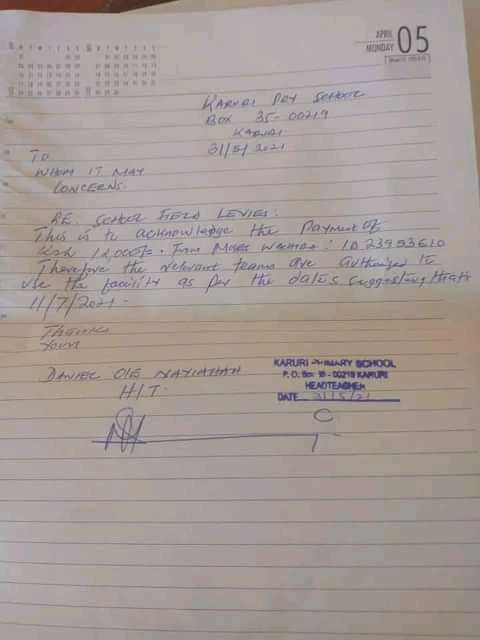 APRIL
MONDAY 05
KARURI PRY SCHOOL
BOX 35-00219
KARURI.
31/5/2021
TO
WHOM IT MAY
CONCERNS.
RE: SCHOOL FIELD LEVIES:
This is to acknowledge the payment of
Ksh 12,000/=. From Moses : ID 23953610
Therefore the relevant teams are authorized to
use the facility as per the dates suggesting that's
11/7/2021.
Thanks
Yours
DANIEL OLE
H/T.
KARURI PRIMARY SCHOOL
P. O. Box 35 - 00219 KARURI
HEADTEACHER
DATE 31/5/21